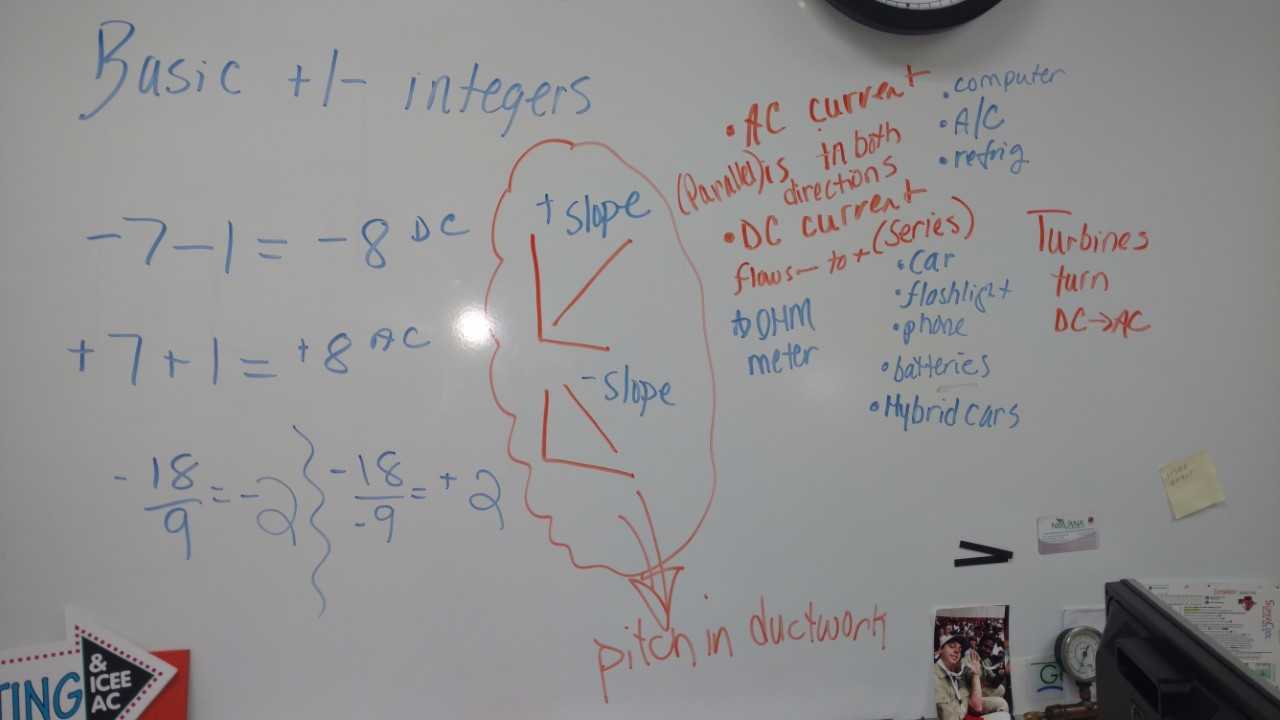 Basic +/- integers
-7-1=-8 DC
+7+1=+8 AC
-18/9=-2
-18/-9=+2
+ slope
- slope
pitch in ductwork
• AC current
(Parallel) is in both
directions
• computer
• A/C
• refrig
• DC current
flows - to + (series)
OHM
meter
• car
• flashlight
• phone
• batteries
• Hybrid cars
Turbines
turn
DC→AC
NIRVANA
TING
& ICEE
AC
G